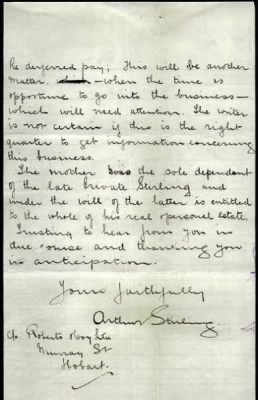 Re deferred pay; this will be another
matter, – when the time is
opportune to go into the business –
which will need attention. The writer
is not certain if this is the right
quarter to get information concerning
this business.
The mother was the sole dependent
of the late Private Stirling and
under the will of the latter is entitled
to the whole of his real & personal estate.
Trusting to hear from you in
due course and thanking you
in anticipation.
Yours faithfully
Arthur Stirling
c/o. Roberts & Coy Ltd
Murray St
Hobart.